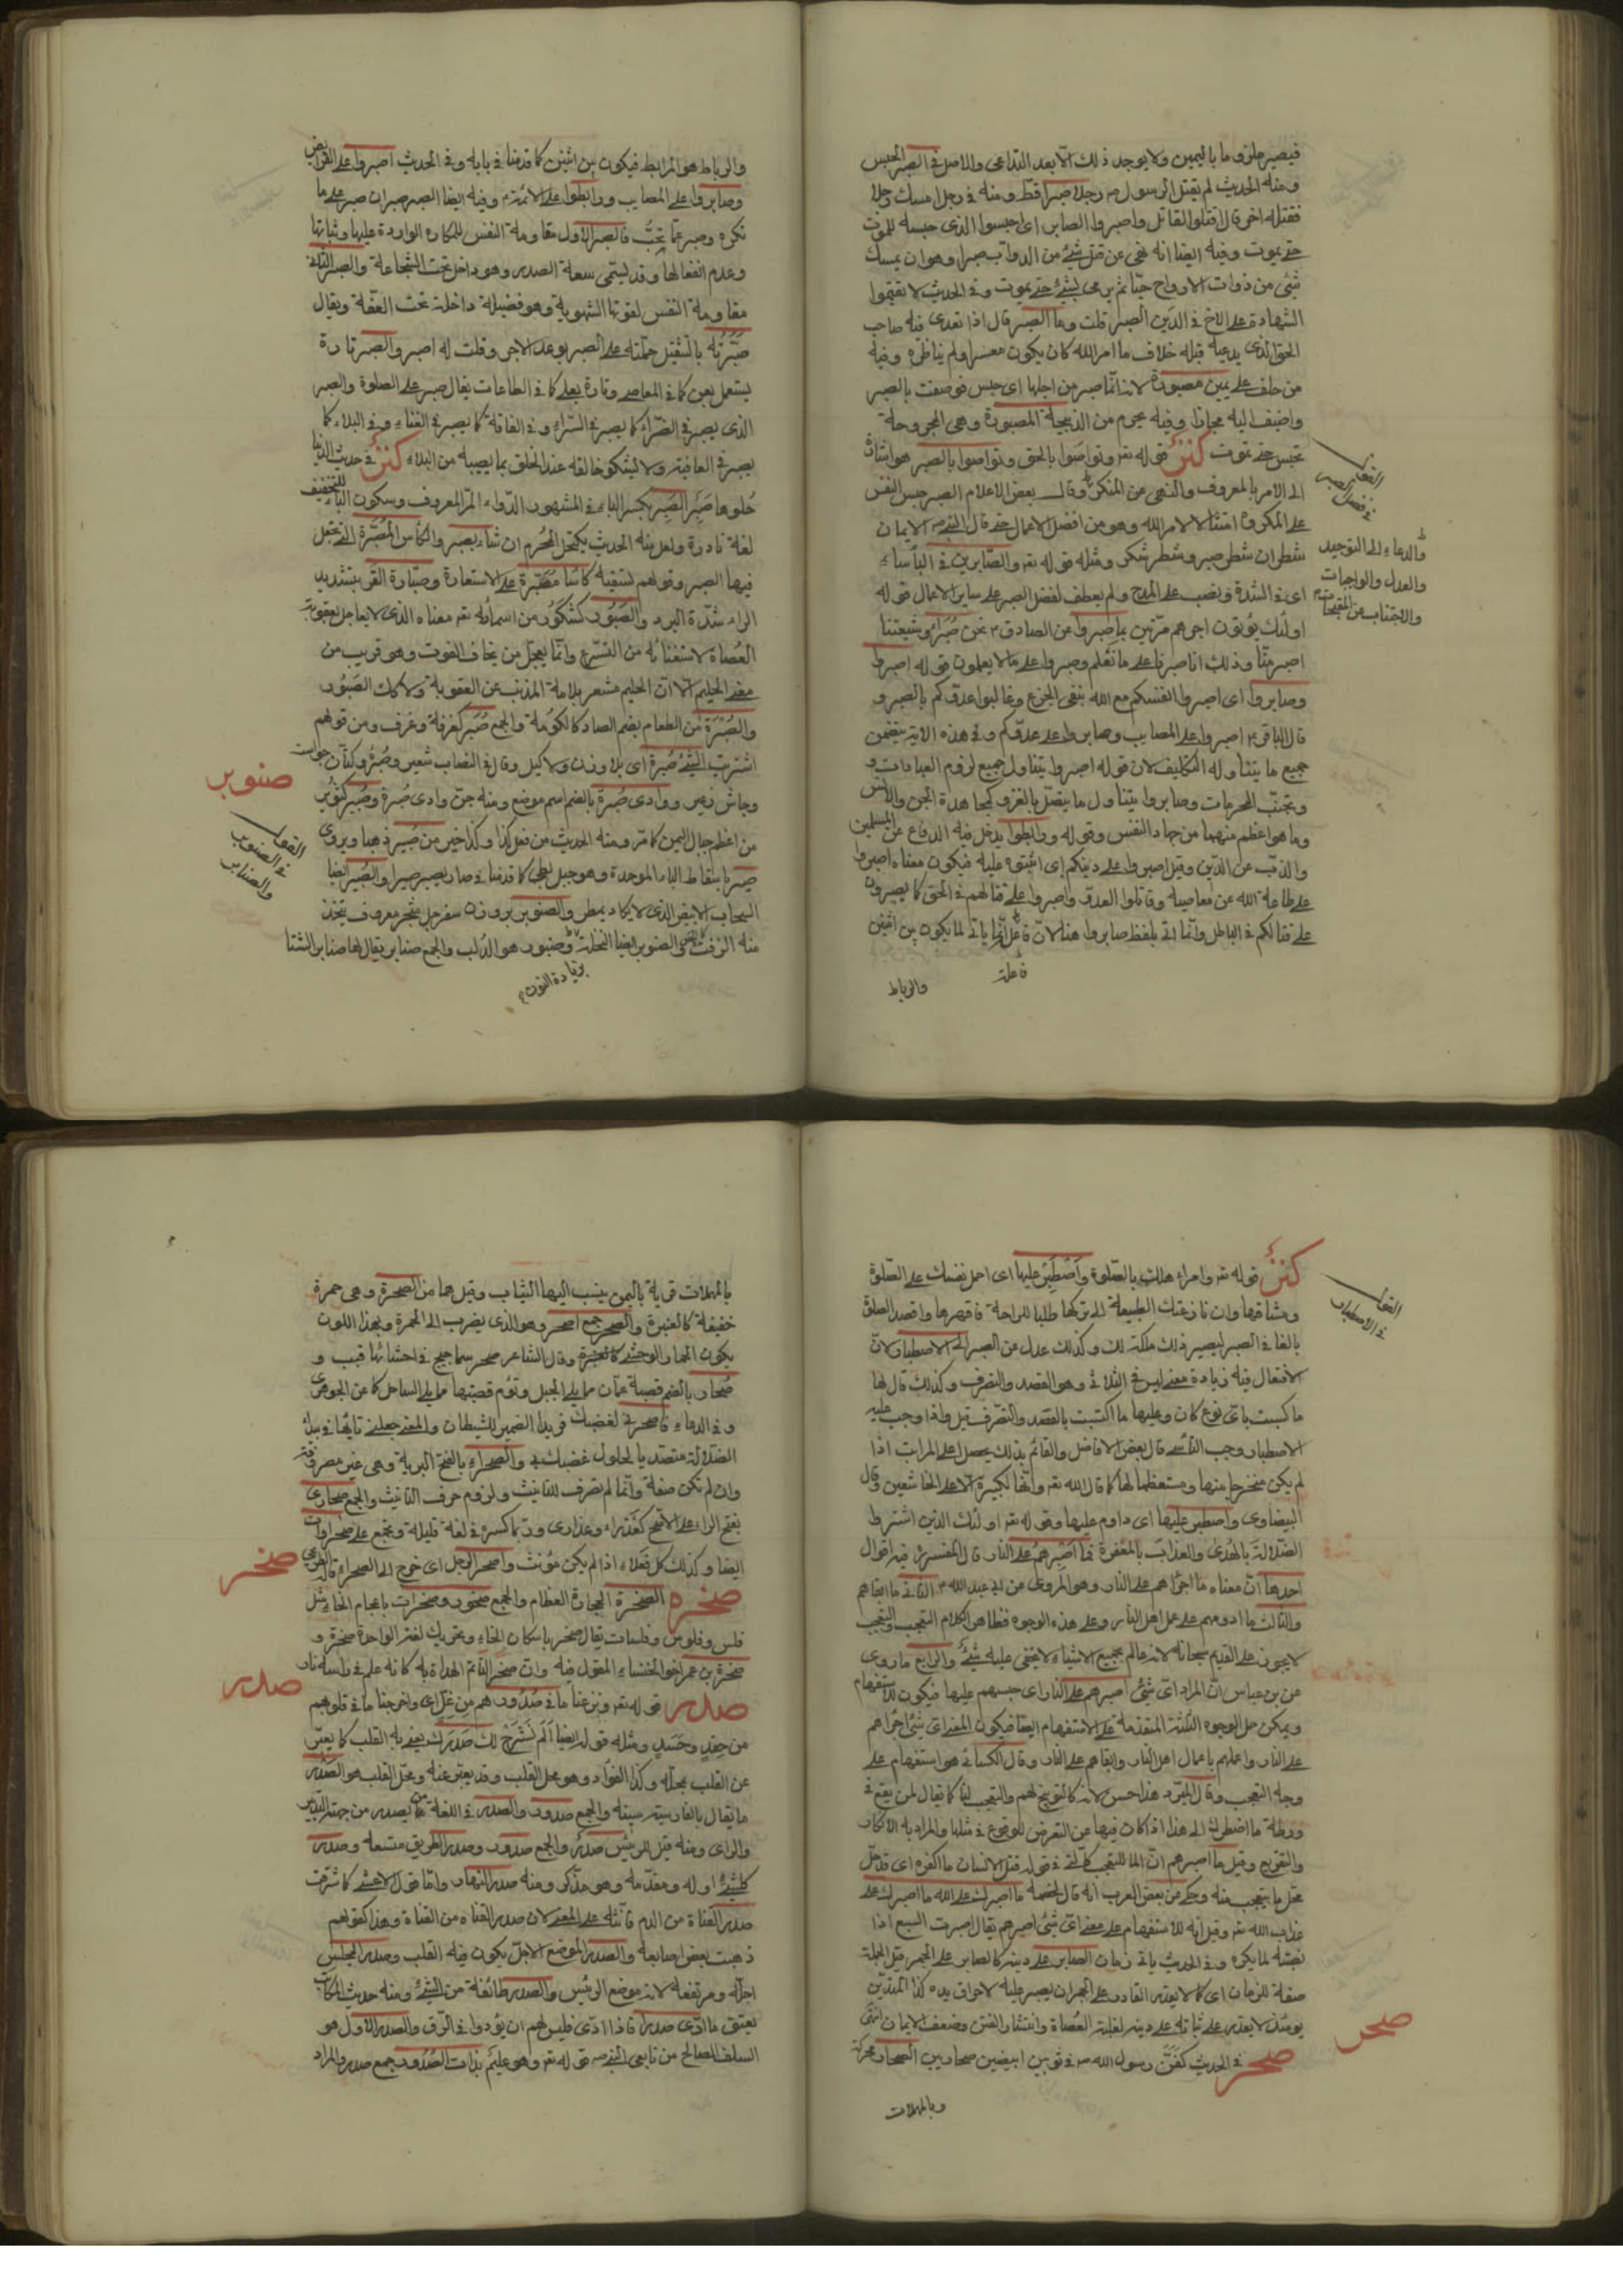 فيصير ملزوما باليمين ولا يوجد ذلك الا بعد التداعى والاصل فى الصبر الحبس
ومنه الحديث لم يقتل الرسول ص رجلا صبرا قط ومنه فى رجل امسك رجلا
فقتله اخر قال اقتلوا القاتل واصبروا الصابر اى احبسوا الذى حبسه للموت
حتى يموت وفيه ايضا انه نهى عن قتل شئ من الدواب صبرا وهو ان يمسك
شئ من ذوات الارواح حيا ثم يرمى بشئ حتى يموت وفى الحديث لا تقيموا
الشهادة على الاخ فى الدين الصبر قلت وما الصبر قال اذا تعدى فيه صاحب
الحق الذى يدعيه قبله خلاف ما امر الله كان يكون معسرا ولم يناظره وفيه
من حلف على يمين مصبورة لانه انما صبر من اجلها اى حبس فوصفت بالصبر
واضيف اليه مجازا وفيه يحرم من الذبيحة المصبورة وهى المجروحة
تحبس حتى تموت كنز قوله تعـ وتواصوا بالحق وتواصوا بالصبر هو اشارة
الى الامر بالمعروف والنهى عن المنكر وقال بعض الاعلام الصبر حبس النفس
على المكروه امتثالا لامر الله وهو من افضل الاعمال حتى قال النبى ص الايمان
شطران شطر صبر وشطر شكر ومثله قوله تعـ والصابرين فى الباساء
اى فى الشدة ونصب على المدح ولم يعطف لفضل الصبر على ساير الاعمال قوله
اولئك يؤتون اجرهم مرتين بما صبروا عن الصادق ع نحن صبراء وشيعتنا
اصبر منا وذلك انا صبرنا على ما نعلم وصبروا على ما لا يعلمون قوله اصبروا
وصابروا اى اصبروا انفسكم مع الله بنفى الجزع وغالبوا عدوكم بالصبر و
قال الباقر ع اصبروا على المصايب وصابروا على عدوكم وفى هذه الاية يتضمن
جميع ما يتناوله التكليف لان قوله اصبروا يتناول جميع لزوم العبادات و
وتجنب المحرمات وصابروا يتناول ما يتصل بالغزو كمجاهدة الجن والانس
وما هو اعظم منهما من جهاد النفس وقوله ورابطوا يدخل فيه الدفاع عن المسلمين
والذب عن الدين وقيل اصبروا على دينكم اى اثبتوا عليه فيكون معناه اصبروا
على طاعة الله عن معاصيه وقاتلوا العدو واصبروا على قتالهم فى الحق كما يصبرون
على قتالكم فى الباطل وانما اتى بلفظ صابروا هنا لان فاعل انما ياتى لما يكون بين اثنين
فاعلة
والرباط
القول فى فضل الصبر
والدعاء الى التوحيد
والعدل والواجبات
والاجتناب عن المقبحات
والرباط هو المرابط فيكون بين اثنين كما قدمنا فى بابه وفى الحديث اصبروا على الفرايض
وصابروا على المصايب ورابطوا على الائمة ع وفيه ايضا الصبر صبران صبر على ما
تكره وصبر عما تحب فالصبر الاول مقاومة النفس للمكاره الواردة عليها وثباتها
وعدم انفعالها وقد يسمى سعة الصدر وهو داخل تحت الشجاعة والصبر الثانى
مقاومة النفس لقوتها الشهوية وهو فضيلة داخلة تحت العفة ويقال
صبرته بالتثقيل حملته على الصبر بوعد الاجر وقلت له اصبر والصبر تارة
يستعمل بعن كما فى المعاصى وتارة بعلى كما فى الطاعات يقال صبر على الصلوة والصبر
الذى يصبر فى الضراء كما يصبر فى السراء وفى الفاقة كما يصبر فى الغناء وفى البلاء كما
يصبر فى العافية ولا يشكو خالقه عند الخلق بما يصيبه من البلاء كنز فى حديث الدنيا
حلوها صبر الصبر بكسر الباء فى المشهور الدواء المر المعروف وسكون الباء للتخفيف
لغة نادرة ولعل منه الحديث يكتحل المحرم ان شاء بصبر والكاس المصبرة التى يجعل
فيها الصبر وقولهم لسقيه كاسا مصبرة على الاستعارة وصبارة القر بتشديد
الراء شدة البرد والصبور كشكور من اسمائه تعـ معناه الذى لا يعاجل بعقوبة
العصاة لاستغنائه من التسرع وانما يعجل من يخاف الفوت وهو قريب من
معنى الحليم الا ان الحليم مشعر بلامة المذنب عن العقوبة ولا كذلك الصبور
والصبرة من الطعام بضم الصاد كالكومة والجمع صبر كغرفة وغرف ومن قولهم
اشتريت الشئ صبرة اى بلا وزن ولا كيل وقال فى النصاب شعير وصبر وكتان جو است
وجاش زغير ووادى صبرة بالضم اسم موضع ومنه جن وادى صبرة وصبير كتور
من اعظم جبال اليمن كما مر ومنه الحديث من فعل كذا وكذا خير من صبير ذهبا ويروى
صير باسقاط الباء الموحدة وهو جبل لطى كما قدمنا فى صار يصير صيرا والصبير ايضا
السحاب الابيض الذى لا يكاد يمطر والصنوبر بروزن سفرجل شجر معروف يتخذ
منه الزفت والصنوبر ايضا النخلة وصنبور هو الدلب والجمع صنابر يقال لها صنابر الشتا
بزيادة النون
صنوبر
القول فى الصنوبر والصنابر
كنز قوله تعـ وامر اهلك بالصلوة واصطبر عليها اى احمل نفسك على الصلوة
ومشاقها وان نازعتك الطبيعة الى تركها طلبا للراحة فاقهرها واقصد الصلوة
بالغا فى الصبر ليصير ذلك ملكة لك وكذلك عدل عن الصبر الى الاصطبار لان
الافتعال فيه زيادة معنى ليس فى الثلاثى وهو القصد والتصرف وكذلك قال لها
ما كسبت باى نوع كان وعليها ما اكتسبت بالقصد والتصرف قيل واذا وجب عليه
الاصطبار وجب التأسى قال بعض الافاضل والقائم بذلك يحصل اعلى المراتب اذا
لم يكن متضجرا منها ومستعظما لها كما قال الله تعـ وانها لكبيرة الا على الخاشعين وقال
البيضاوى واصطبر عليها اى داوم عليها وقوله تعـ اولئك الذين اشتروا
الضلالة بالهدى والعذاب بالمغفرة فما اصبرهم على النار قال المفسرون فيه اقوال
احدها ان معناه ما اجرأهم على النار وهو المروى عن ابى عبد الله ع الثانى ما ابقاهم
والثالث ما ادومهم على عمل اهل النار وعلى هذه الوجوه فظاهر الكلام التعجب والتعجب
لا يجوز على القديم سبحانه لانه عالم بجميع الاشياء لا يخفى عليه شئ والرابع ما روى
عن بن عباس ان المراد اى شئ اصبرهم على النار اى حبسهم عليها فيكون للاستفهام
ويمكن حمل الوجوه الثلثة المتقدمة على الاستفهام ايضا فيكون المعنى اى شئ اجرأهم
على النار واعملهم باعمال اهل النار وابقاهم على النار وقال الكسائى هو استفهام على
وجه التعجب وقال المبرد هذا حسن لانه كالتوبيخ لهم والتعجب لنا كما يقال لمن يقع فى
ورطة ما اضطرك الى هذا اذا كان فيها عن التعرض للوقوع فى مثلها والمراد به الانكار
والتقريع وقيل ما اصبرهم ان ما للتعجب كالتى فى قوله قتل الانسان ما اكفره اى قد حل
محل ما يتعجب منه وحكى عن بعض العرب انه قال لخصمه ما اصبرك على الله ما اصبرك على
عذاب الله تعـ وقيل انه للاستفهام على معنى اى شئ اصبرهم يقال اصبرت السبع اذا
نصبته لما يكره وفى الحديث ياتى زمان الصابر على دينه كالصابر على الجمر قيل الجملة
صفة للزمان اى كما لا يقدر القادر على الجمر ان يصبر عليه لاحراق يده كذا المتدين
يومئذ لا يقدر على ثباته على دينه لغلبة العصاة وانتشار الفتن وضعف الايمان انتهى
صحر فى الحديث كفن رسول الله ص فى ثوبين ابيضين صحاريين الصحار محركة
وبالمهلات
القول فى الاصطبار
صحر
بالمهلات قرية باليمن ينسب اليها الثياب وقيل هما من الصحرة وهى حمرة
خفيفة كالغبرة والصحر جمع اصحر وهو الذى يضرب الى الحمرة وبهذا اللون
يكون الحمار الوحشى كالغبرة وقال الشاعر صحر سماحيج فى احشائها قبب و
صحار بالضم قصبة عمان مما يلى الجبل وتؤم قصبتها مما يلى الساحل كما عن الجوهرى
وفى الدعاء فاصحر بى لغضبك فريدا الضمير للشيطان والمعنى جعلنى تايها فى بيداء
الضلالة متصديا لحلول غضبك بى والصحراء بالفتح البرية وهى غير مصرفة
وان لم تكن صفة وانما لم تصرف للتانيث ولزوم حرف التانيث والجمع صحارى
بفتح الراء على الاصح كعذراء وعذارى وربما كسر فى لغة قليلة وتجمع على صحراوات
ايضا وكذلك كل فعلاء اذا لم يكن مؤنث واصحر الرجل اى خرج الى الصحراء قاله الجوهرى
صخره الصخرة الحجارة العظام والجمع صخور وصخرات باعجام الخاء مثل
فلس وفلوس وفلسات يقال صخر باسكان الخاء وتحريك لغة الواحدة صخرة و
صخرة بن عمر اخو الخنساء المقول فيه وان صخر التاتم الهداة به كانه علم فى راسه نار
صدر قوله تعـ ونزعنا ما فى صدورهم من غل اى واخرجنا ما فى قلوبهم
من حقد وحسد ومثله قوله ايضا الم نشرح لك صدرك يعنى به القلب كما يعبر
عن القلب بمحله وكذا الفؤاد وهو محل القلب وقد يعبر عنه ومحل القلب هو الصدر
ما يقال بالفارسية سينه والجمع صدور والصدر فى اللغة ما يصدر من جهته التدبير
والراى ومنه قيل للرئيس صدر والجمع صدور وصدر الطريق متسعه وصدر
كل شئ اوله ومقدمه وهو مذكر ومنه صدر النهار واما قول الاعشى كما شرقت
صدر القناة من الدم فانثه على المعنى لان صدر القناه من القناة وهذا كقولهم
ذهبت بعض اصابعه والصدر الموضع الاجل يكون فيه القلب وصدر المجلس
اجله ومرتفعه لانه موضع الرئيس والصدر طائفة من الشئ ومنه حديث المكاتب
يعتق ما ادى صدرا فاذا ادى فليس لهم ان يؤدوا فى الرق والصدر الاول هو
السلف الصالح من تابعى النبى ص قوله تعـ وهو عليم بذات الصدور جمع صدر والمراد
صخر
صدر